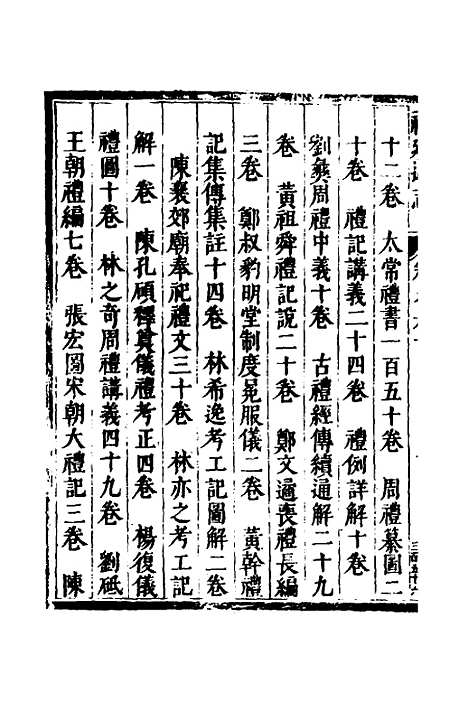 十二卷　太常禮書一百五十卷　周禮纂圖二
十卷　禮記講義二十四卷　禮例詳解十卷
劉彝周禮中義十卷　古禮經傳續通解二十九
卷　黃祖舜禮記說二十卷　鄭文遹喪禮長編
三卷　鄭叔豹明堂制度冕服儀二卷　黃幹禮
記集傳集註十四卷　林希逸考工記圖解二卷
陳襄郊廟奉祀禮文三十卷　林亦之考工記
解一卷　陳孔碩釋奠儀禮考正四卷　楊復儀
禮圖十卷　林之奇周禮講義四十九卷　劉砥
王朝禮編七卷　張宏圖宋朝大禮記三卷　陳